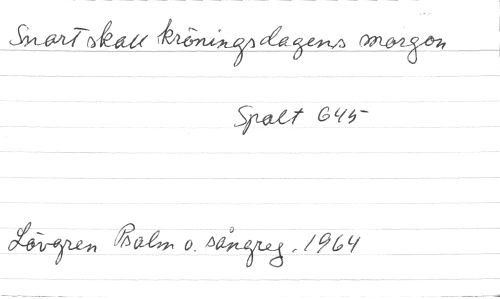 Snart skall kröningsdagens morgon
Spalt 645
Lövgren Psalm o. sångreg. 1964